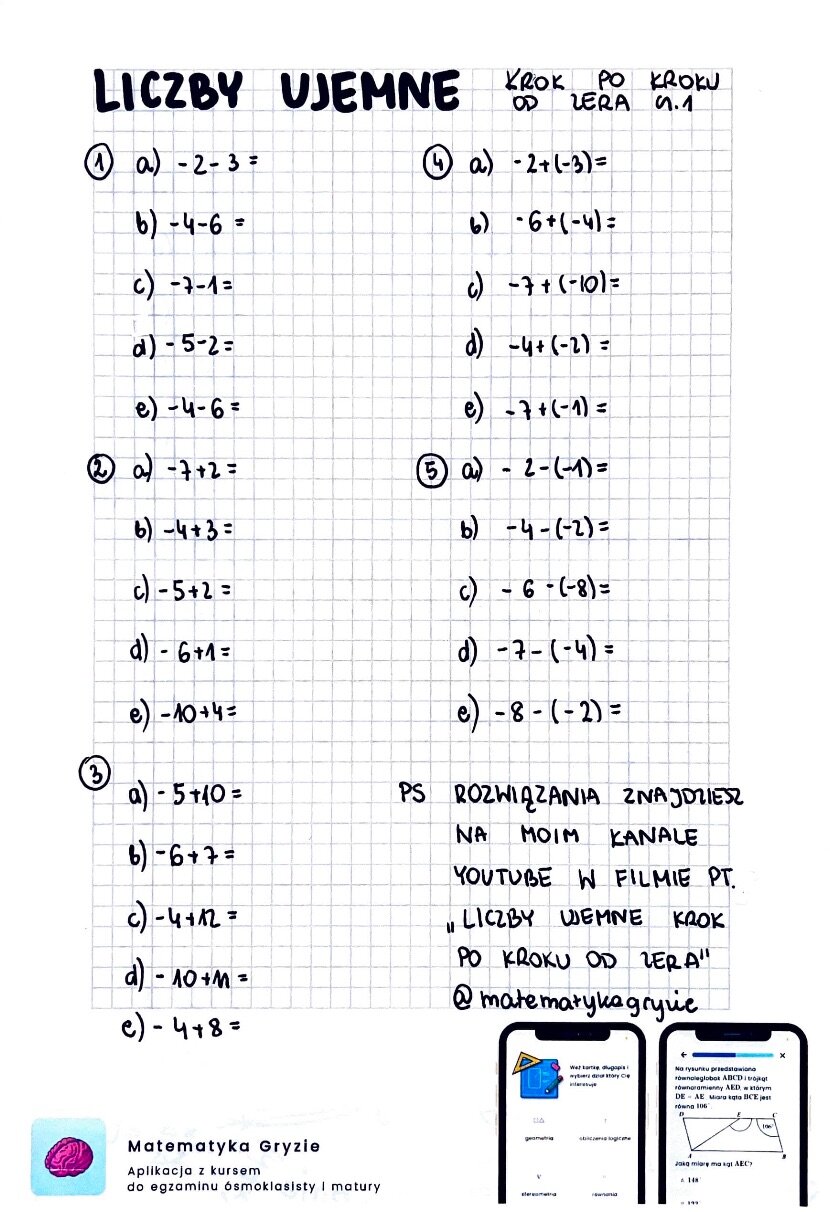 LICZBY UJEMNE
KROK PO KROKU
OD ZERA cz.1
1 a) -2-3=
b) -4-6 =
c) -7-1=
d) -5-2=
e) -4-6=
2 a) -7+2=
b) -4+3=
c) -5+2 =
d) -6+1=
e) -10+4=
3
a) -5+10=
b) -6+7=
c) -4+12 =
d) -10+11=
e) -4+8=
4 a) -2+(-3)=
b) -6+(-4)=
c) -7+(-10)=
d) -4+(-2) =
e) -7+(-1) =
5 a) -2-(-1)=
b) -4-(-2)=
c) -6-(-8)=
d) -7-(-4)=
e) -8-(-2)=
PS ROZWIĄZANIA ZNAJDZIESZ
NA MOIM KANALE
YOUTUBE W FILMIE PT.
„LICZBY UJEMNE KROK
PO KROKU OD ZERA"
@matematykagryzie
Matematyka Gryzie
Aplikacja z kursem
do egzaminu ósmoklasisty i matury
Weź kartkę, długopis i
wybierz dział który Cię
interesuje
geometria
obliczenia logiczne
V
stereometria
równania
Na rysunku przedstawiono
równoległobok ABCD i trójkąt
równoramienny AED, w którym
DE = AE. Miara kąta BCE jest
równa 106°.
D E C
106°
A B
Jaką miarę ma kąt AEC?
A. 148°